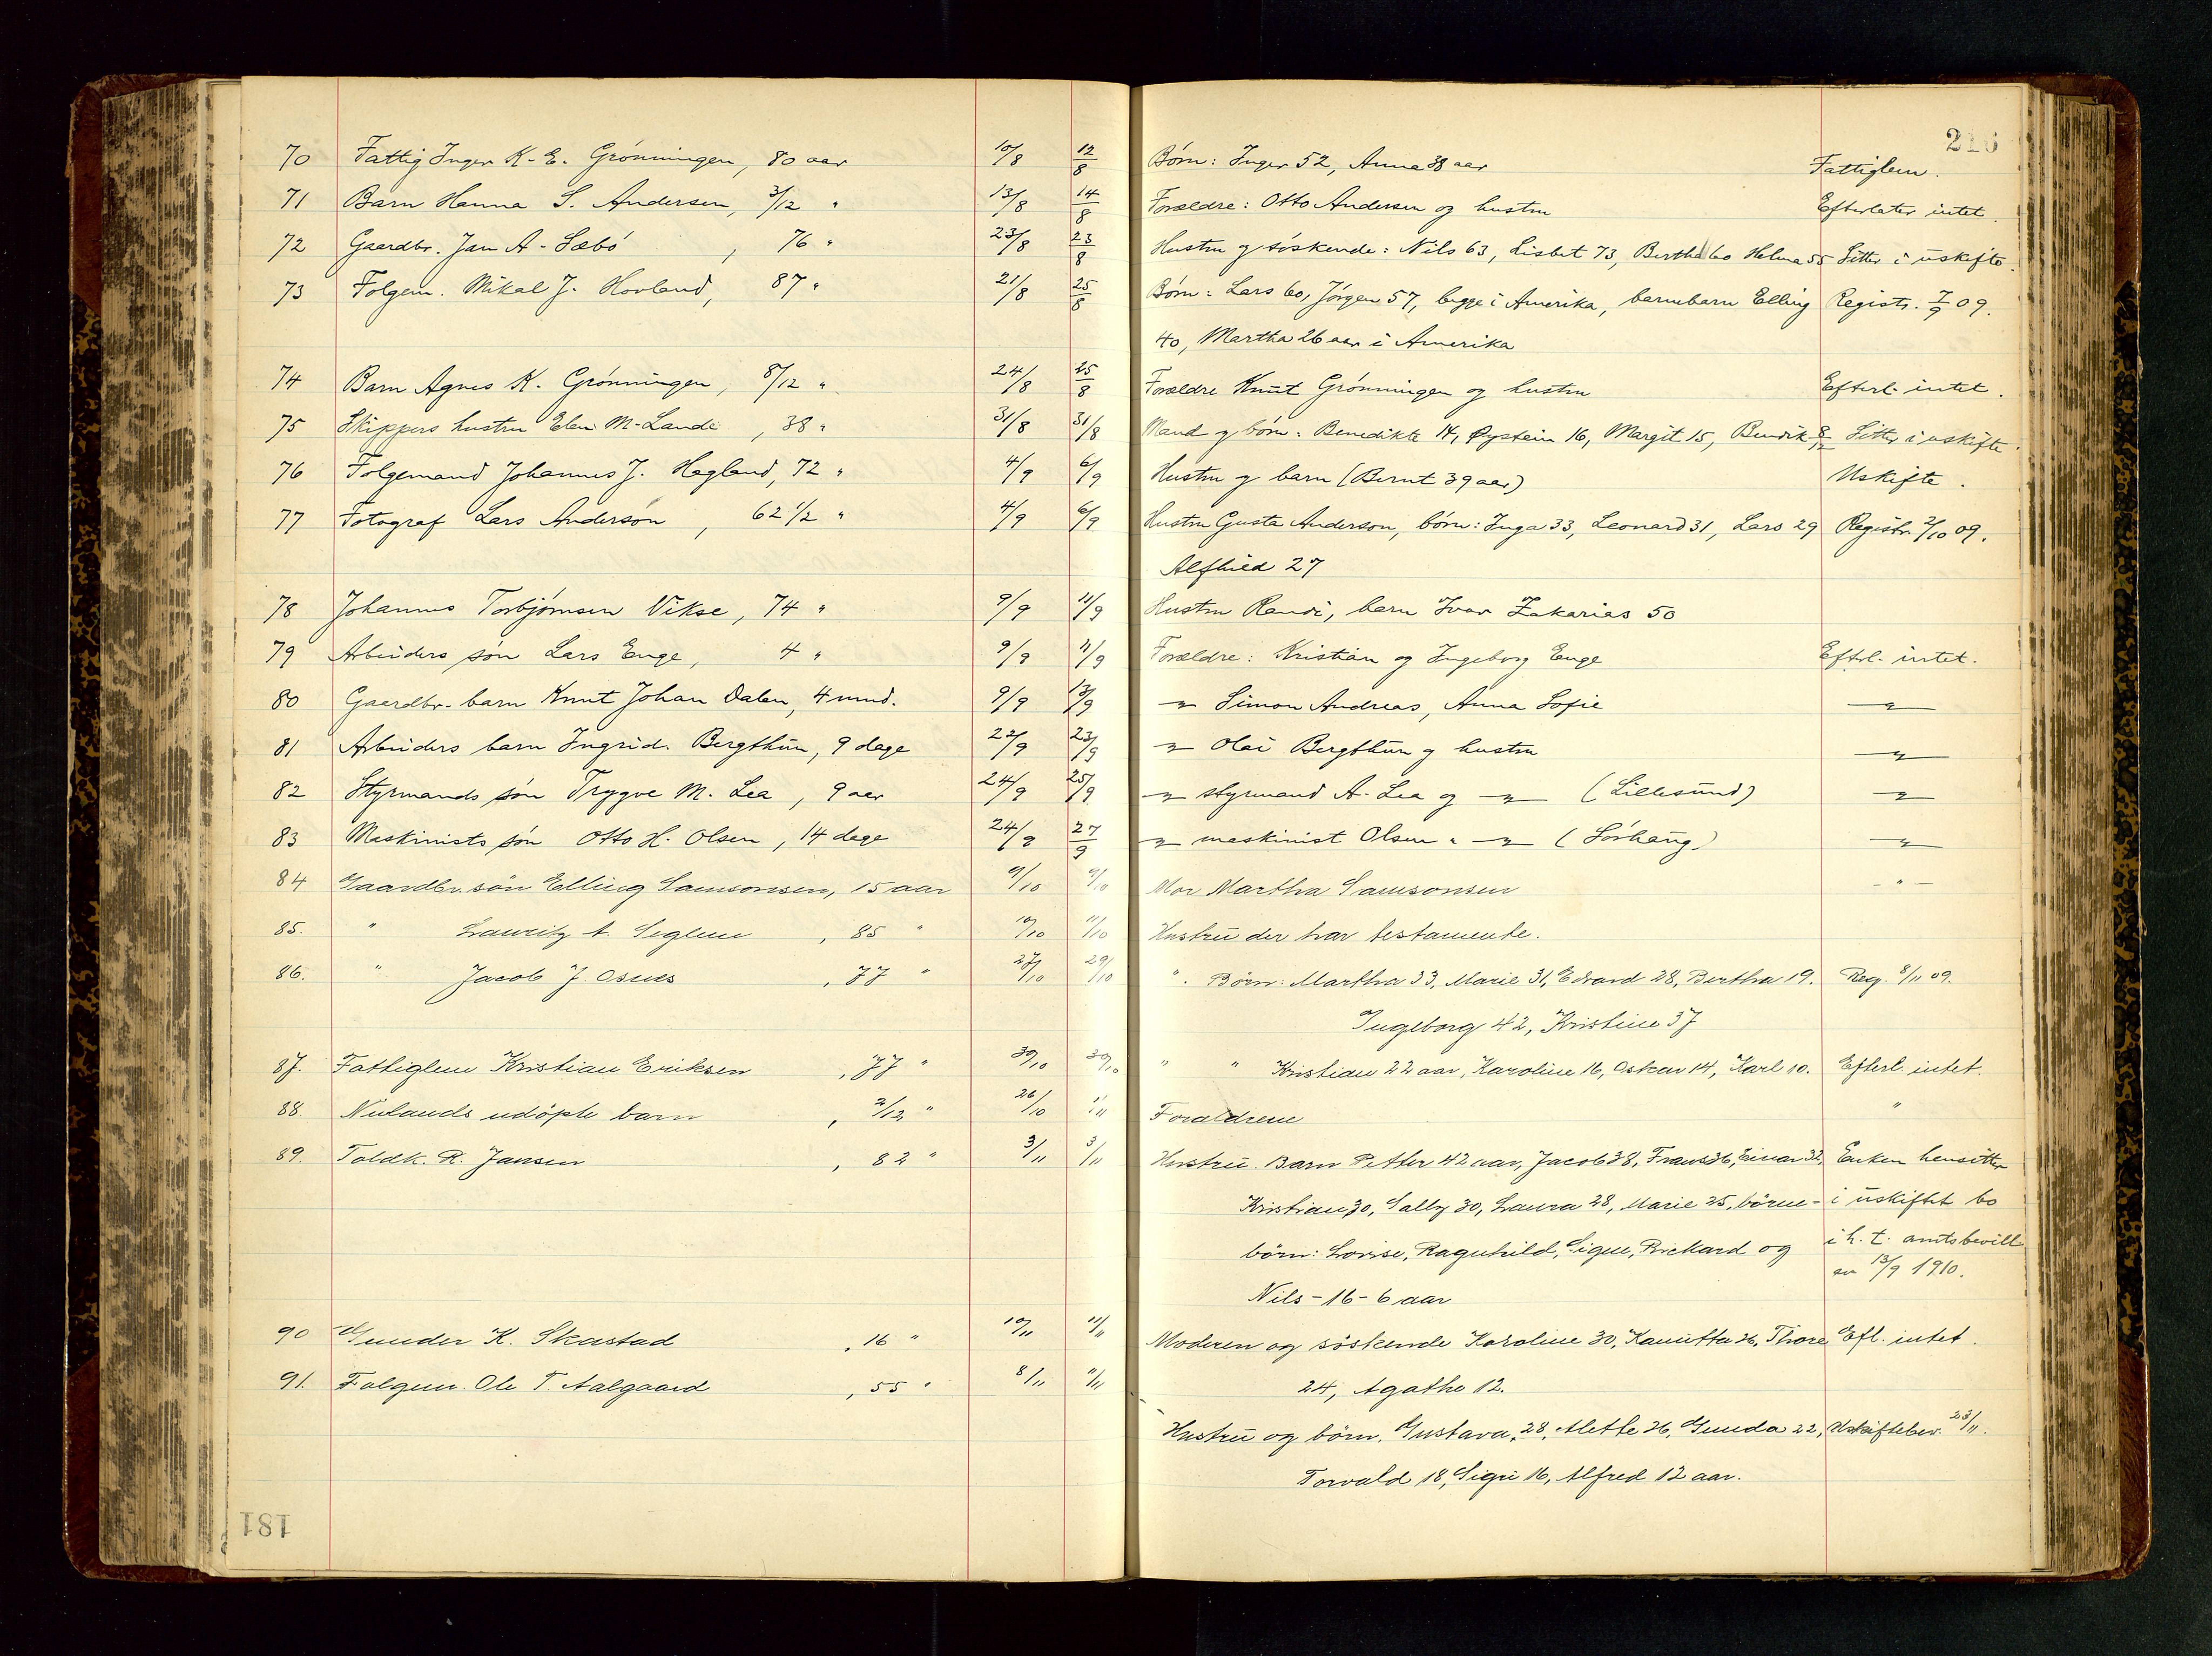 216
70 Fattig Inger K. E. Grönningen, 80 aar 10/8 12/8 Børn: Inger 52, Anna 38 aar Fattiglem.
71 Barn Hanna S. Andersen, 3/12 " 13/8 14/8 Forældre: Otto Andersen og hustru Efterlater intet.
72 Gaardbr. Jan A. Sæbö, 76 " 23/8 23/8 Hustru og söskende: Nils 63, Lisbet 73, Bertha 60 Helena 55 Sitter i uskifte.
73 Folgem. Mikal J. Hovland, 87 " 21/8 25/8 Börn: Lars 60, Jörgen 57, begge i Amerika, barnebarn Elling Registr. 7/9 09.
40, Martha 26 aar i Amerika
74 Barn Agnes K. Grönningen, 8/12 " 24/8 25/8 Forældre Knut Grönningen og hustru Efterl. intet.
75 Skippers hustru Elen M. Lande, 38 " 31/8 31/8 Mand og börn: Benedikte 14, Øystein 16, Margit 15, Bendik 8/12 Sitter i uskifte.
76 Folgemand Johannes J. Hagland, 72 " 4/9 6/9 Hustru og barn (Bernt 39 aar) Uskifte.
77 Fotograf Lars Anderson, 62 1/2 " 4/9 6/9 Hustru Gusta Anderson, börn: Inga 33, Leonard 31, Lars 29 Registr. 2/10 09.
Alfhild 27
78 Johannes Torbjörnsen Vikse, 74 " 9/9 11/9 Hustru Randi, barn Ivar Zakarias 50
79 Arbeiders sön Lars Enge, 4 " 9/9 11/9 Forældre: Kristian og Ingeborg Enge Efterl. intet.
80 Gaardbr. barn Knut Johan Dalen, 4 mnd. 9/9 13/9 — " — Simon Andreas, Anna Sofie — " —
81 Arbeiders barn Ingrid Bergthun, 9 dage 22/9 23/9 — " — Olai Bergthun og hustru — " —
82 Styrmands sön Trygve M. Lea, 9 aar 24/9 25/9 — " — styrmand A. Lea og — " — (Lillesund) — " —
83 Maskinists sön Otto H. Olsen, 14 dage 24/9 27/9 — " — maskinist Olsen " — " — (Sörhaug) — " —
84 Gaardbr. sön Elling Samsonsen, 15 aar 9/10 9/10 Mor Martha Samsonsen — " —
85. " Lauritz A. Seglem, 85 " 10/10 11/10 Hustru der har testamente.
86. " Jacob J. Osnes, 77 " 27/10 29/10 ". Börn: Martha 33, Marie 31, Edvard 28, Bertha 19. Reg. 8/11 09.
Ingeborg 42, Kristine 37
87. Fattiglem Kristian Eriksen, 77 " 30/10 30/10 " " Kristian 22 aar, Karoline 16, Oskar 14, Karl 10. Efterl. intet.
88. Nulands udöpte barn, 2/12 " 26/10 1/11 Forældrene "
89. Toldk. R. Jansen, 82 " 3/11 3/11 Hustru. Barn Petter 42 aar, Jacob 38, Frans 36, Einar 32, Enken hensitter
Kristian 30, Sally 30, Laura 28, Marie 25, börne- i uskiftet bo
börn: Lovise, Ragnhild, Signe, Rickard og i h. t. amtsbevill
Nils - 16 - 6 aar av 13/9 1910.
90 Gunder K. Skastad, 16 " 10/11 11/11 Moderen og söskende Karoline 30, Kamitta 26, Thore Efl. intet.
24, Agathe 12.
91. Folgem. Ole T. Aalgaard, 55 " 8/11 11/11
Hustru og börn. Gustava 28, Alette 26, Gunda 22, Uskiftebev. 23/11.
Torvald 18, Sigri 16, Alfred 12 aar.
181